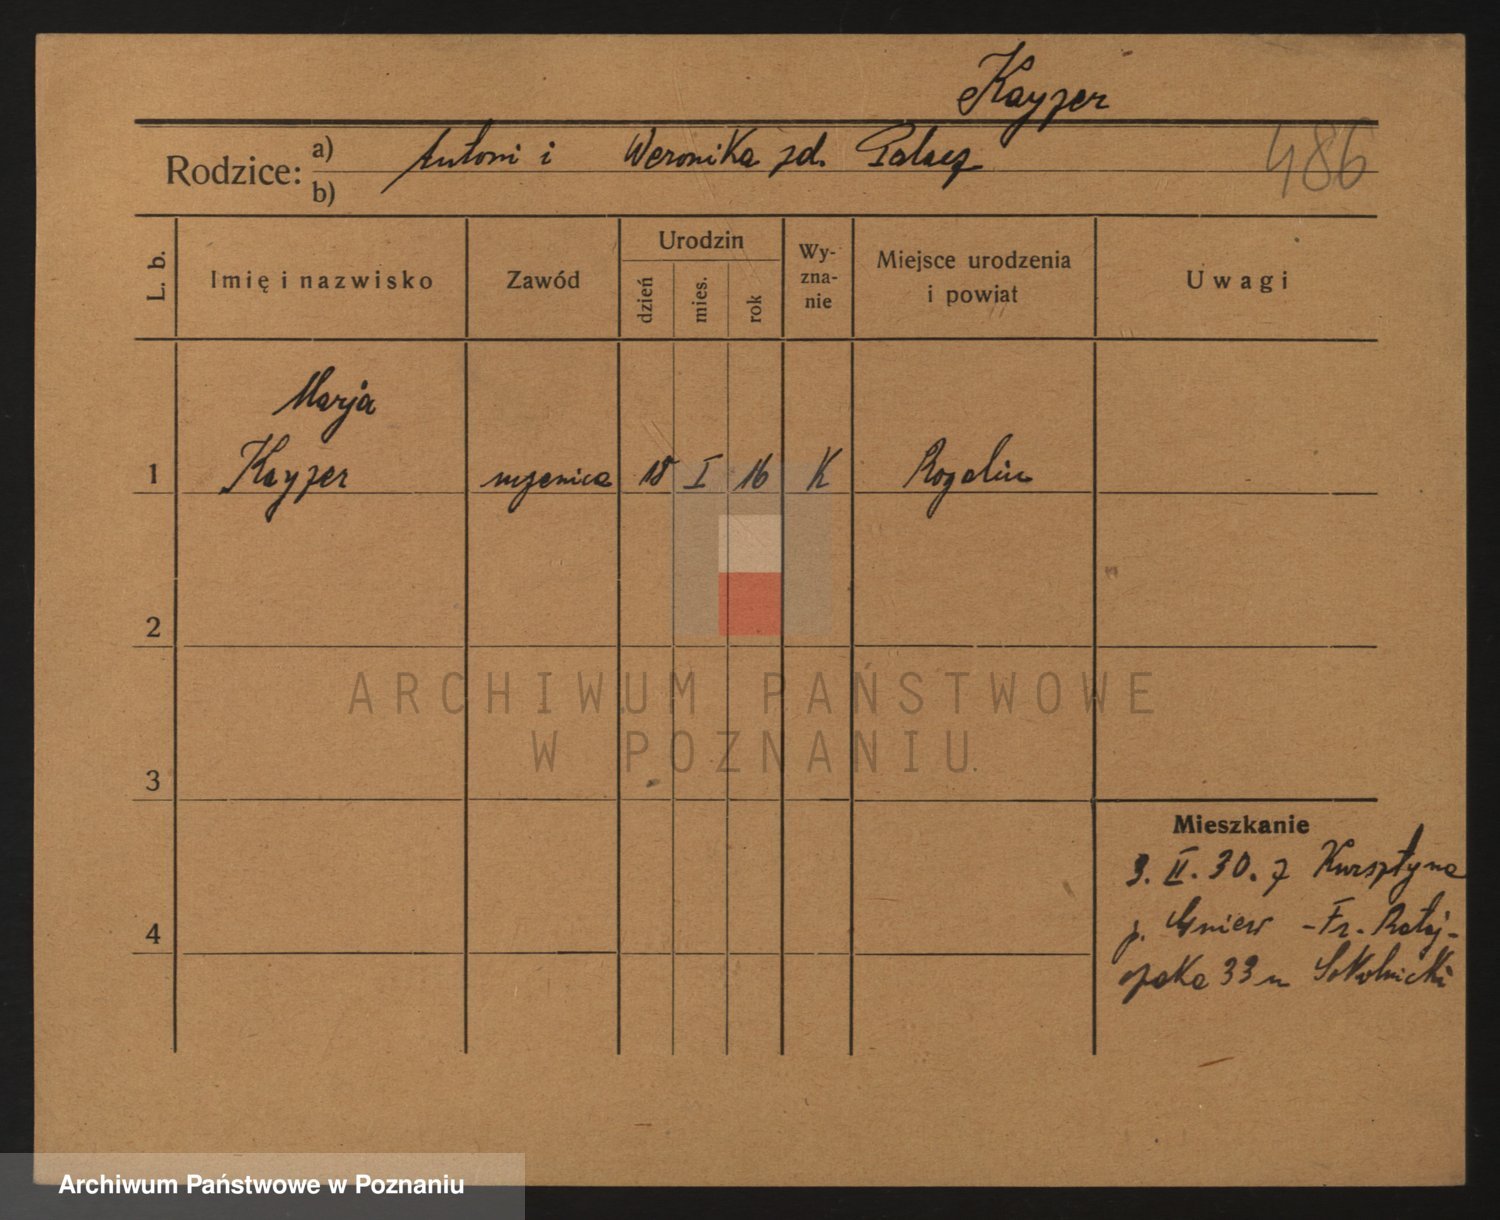 Kayzer
Rodzice: a) Antoni i Weronika zd. Palacz
b)
486
L. b.
Imię i nazwisko
Zawód
Urodzin
dzień
mies.
rok
Wy-
zna-
nie
Miejsce urodzenia
i powiat
Uwagi
Marja
1 Kayzer uczenica 18 I 16 K Rogalin
2
ARCHIWUM PAŃSTWOWE
W POZNANIU
3
Mieszkanie
3. II. 30. z Kursztyna
p. Gniew - Fr. Rataj-
czaka 33 u Sokolnicki
4
Archiwum Państwowe w Poznaniu